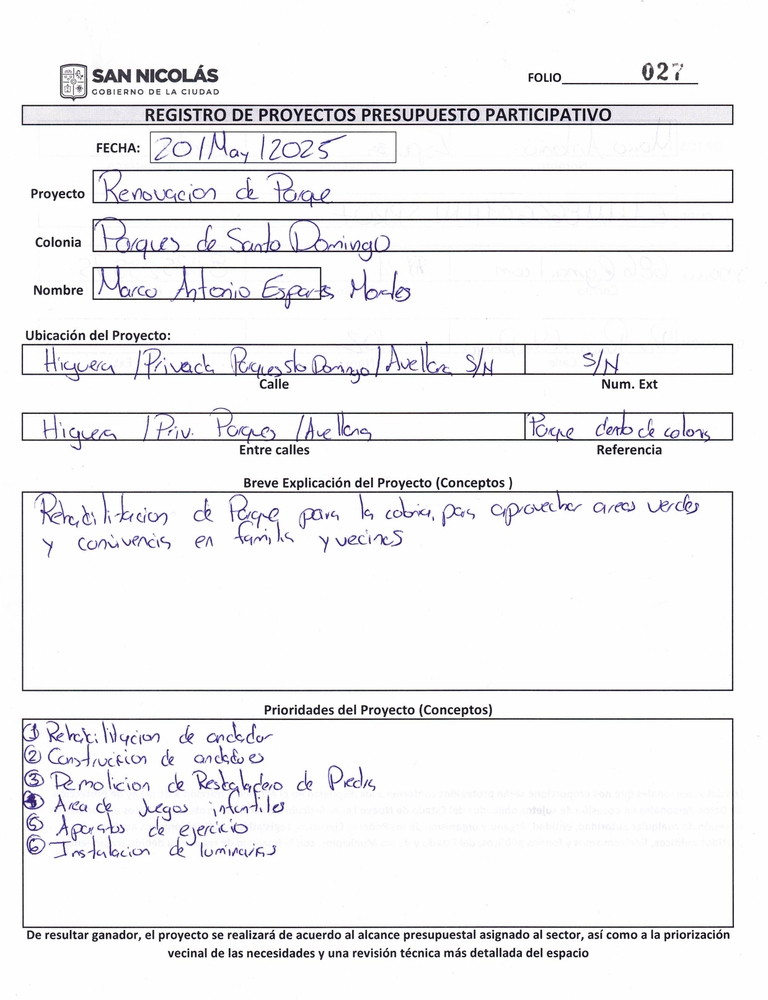 SAN NICOLÁS
GOBIERNO DE LA CIUDAD
FOLIO 027
REGISTRO DE PROYECTOS PRESUPUESTO PARTICIPATIVO
FECHA: 20/May/2025
Proyecto Renovacion de Parque
Colonia Parques de Santo Domingo
Nombre Marco Antonio Esparts Morales
Ubicación del Proyecto:
Higuera /Privada Parques sto Domingo/Avellana S/N S/N
Calle Num. Ext
Higuera /Priv. Parques /Avellana Parque dento de colonia
Entre calles Referencia
Breve Explicación del Proyecto (Conceptos )
Rehabilitacion de Parque para la colonia, para aprovechar areas verdes
y convivencia en familia y vecinos
Prioridades del Proyecto (Conceptos)
① Rehabilitacion de andador
② Construccion de andadores
③ Demolicion de Resbaladero de Piedra
④ Area de Juegos infantiles
⑤ Aparatos de ejercicio
⑥ Instalacion de luminarias
De resultar ganador, el proyecto se realizará de acuerdo al alcance presupuestal asignado al sector, así como a la priorización
vecinal de las necesidades y una revisión técnica más detallada del espacio